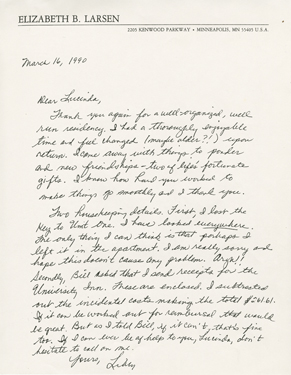 ELIZABETH B. LARSEN
2205 KENWOOD PARKWAY • MINNEAPOLIS, MN 55405 U.S.A.
March 16, 1990
Dear Lucinda,
Thank you again for a well-organized, well
run residency. I had a thoroughly enjoyable
time and feel changed (maybe older??) upon
return. I came away with things to ponder
and new friendships - two of life's fortunate
gifts. I know how hard you worked to
make things go smoothly and I thank you.
Two housekeeping details. First, I lost the
key to Unit One. I have looked everywhere.
The only thing I can think is that perhaps I
left it in the apartment. I am really sorry and
hope this doesn't cause any problem. Argh!
Secondly, Bill asked that I send receipts for the
University Inn. These are enclosed. I subtracted
out the incidental costs making the total $261.61.
If it can be worked out for reimbursal that would
be great. But as I told Bill, if it can't, that's fine
too. If I can ever be of help to you, Lucinda, don't
hesitate to call on me.
Yours,